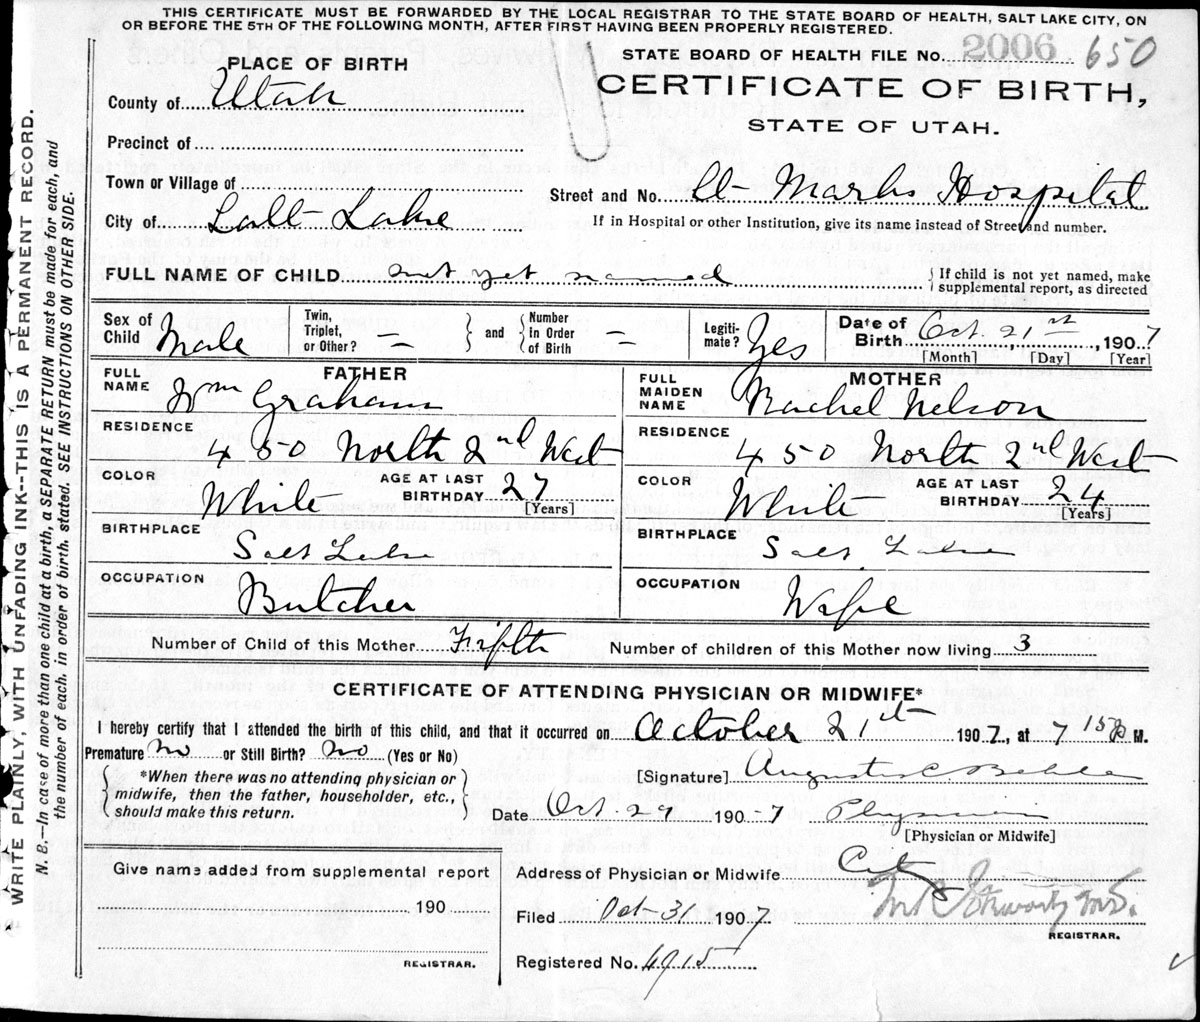 THIS CERTIFICATE MUST BE FORWARDED BY THE LOCAL REGISTRAR TO THE STATE BOARD OF HEALTH, SALT LAKE CITY, ON
OR BEFORE THE 5TH OF THE FOLLOWING MONTH, AFTER FIRST HAVING BEEN PROPERLY REGISTERED.
STATE BOARD OF HEALTH FILE No. 2006 650
PLACE OF BIRTH
CERTIFICATE OF BIRTH,
STATE OF UTAH.
County of Utah
Precinct of
Town or Village of
Street and No. St Marks Hospital
City of Salt Lake
If in Hospital or other Institution, give its name instead of Street and number.
FULL NAME OF CHILD not yet named
If child is not yet named, make
supplemental report, as directed
Sex of Child Male
Twin, Triplet, or Other? —
and
Number in Order of Birth —
Legiti- mate? Yes
Date of Birth Oct. 21st, 1907
[Month] [Day] [Year]
FATHER
FULL NAME Wm Graham
RESIDENCE 450 North 2nd West
COLOR White
AGE AT LAST BIRTHDAY 27 [Years]
BIRTHPLACE Salt Lake
OCCUPATION Butcher
MOTHER
FULL MAIDEN NAME Rachel Nelson
RESIDENCE 450 North 2nd West
COLOR White
AGE AT LAST BIRTHDAY 24 [Years]
BIRTHPLACE Salt Lake
OCCUPATION Wife
Number of Child of this Mother Fifth Number of children of this Mother now living 3
CERTIFICATE OF ATTENDING PHYSICIAN OR MIDWIFE*
I hereby certify that I attended the birth of this child, and that it occurred on October 21st 1907, at 7 15 P M.
Premature no or Still Birth? no (Yes or No)
*When there was no attending physician or
midwife, then the father, householder, etc.,
should make this return.
[Signature] Augustus C Behle
Date Oct. 29 190-7 Physician
[Physician or Midwife]
Give name added from supplemental report
190
REGISTRAR.
Address of Physician or Midwife City
Filed Oct-31 1907
REGISTRAR.
Registered No. 4915
WRITE PLAINLY, WITH UNFADING INK--THIS IS A PERMANENT RECORD.
N. B.—In case of more than one child at a birth, a SEPARATE RETURN must be made for each, and
the number of each. in order of birth. stated. SEE INSTRUCTIONS ON OTHER SIDE.